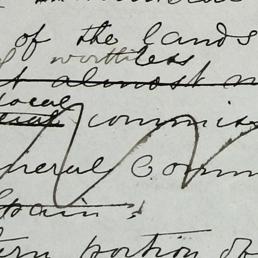 of the lands
worthless
almost
local
commis
neral Comm
Spain;
ern portion of